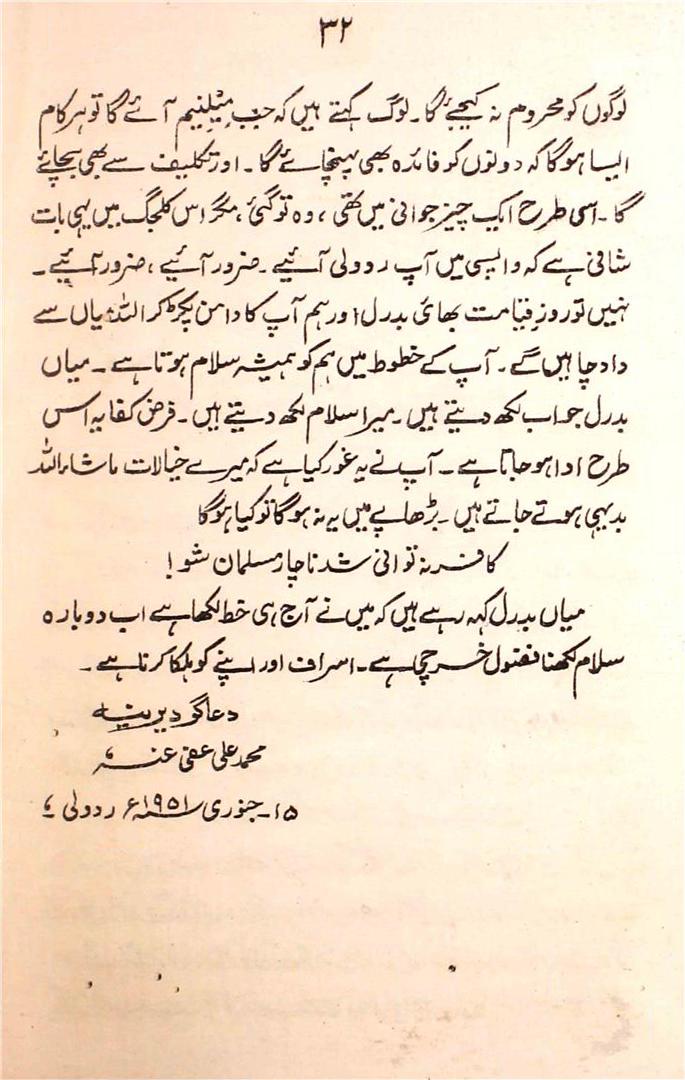 ۳۲
لوگوں کو محروم نہ کیجئے گا۔ لوگ کہتے ہیں کہ جب مِیْلِنیم آئے گا تو ہر کام
ایسا ہوگا کہ دونوں کو فائدہ بھی پہنچائے گا۔ اور تکلیف سے بھی بچائے
گا۔ اسی طرح ایک چیز جوانی میں تھی، وہ تو گئی، مگر اس کلجگ میں یہی بات
شافی ہے کہ واپسی میں آپ ردولی آئیے۔ ضرور آئیے، ضرور آئیے۔
نہیں تو روزِ قیامت بھائی بدرل اور ہم آپ کا دامن پکڑ کر اللہ میاں سے
داد چاہیں گے۔ آپ کے خطوط میں ہم کو ہمیشہ سلام ہوتا ہے۔ میاں
بدرل جواب لکھ دیتے ہیں۔ میرا سلام لکھ دیتے ہیں۔ فرض کفایہ اس
طرح ادا ہو جاتا ہے۔ آپ نے یہ غور کیا ہے کہ میرے خیالات ماشاء اللہ
بدیہی ہوتے جاتے ہیں۔ بڑھاپے میں یہ نہ ہوگا تو کیا ہوگا
کافر نہ توانی شد ناچار مسلمان شو!
میاں بدرل کہہ رہے ہیں کہ میں نے آج ہی خط لکھا ہے اب دوبارہ
سلام لکھنا فضول خرچی ہے۔ اسراف اور اپنے کو ہلکا کرنا ہے۔
دعاگو دیرینہ
محمد علی عفی عنہ
۱۵۔ جنوری ۱۹۵۱ء ردولی